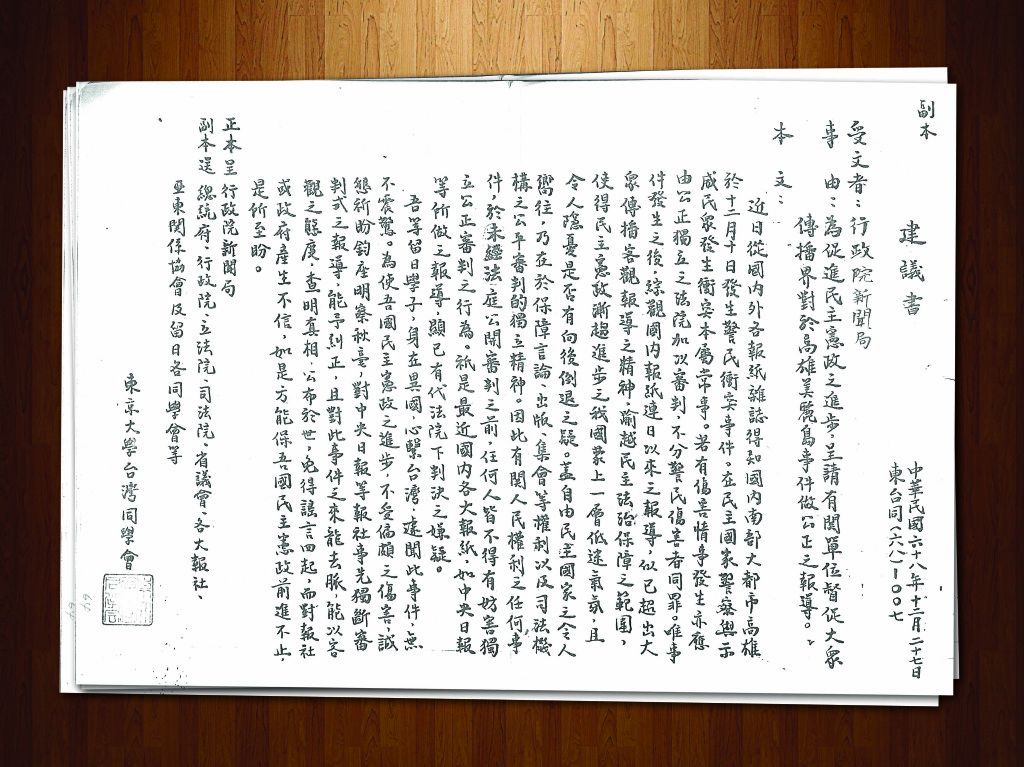 副本
建議書
中華民國六十八年十二月二十七日
東台同(六八)一〇〇七
受文者：行政院新聞局
事　由：為促進民主憲政之進步，呈請有関單位督促大衆
傳播界對於高雄美麗島事件做公正之報導。
本　文：
近日從國內外各報紙雜誌得知國內南部大都市高雄
於十二月十日發生警民衝突事件。在民主國家警察與示
威民衆發生衝突本屬常事。若有傷害情事發生亦應
由公正獨立之法院加以審判，不分警民傷害者同罪。唯事
件發生之後，綜觀國內報紙連日以來之報導，似已超出大
衆傳播客觀報導之精神，踰越民主法治保障之範圍，
使得民主憲政漸趨進步之我國蒙上一層低迷氣氛，且
令人隱憂是否有向後倒退之疑。蓋自由民主國家之令人
嚮往，乃在於保障言論、出版、集會等權利以及司法機
構之公平審判的獨立精神。因此有関人民權利之任何事
件，於未經法庭公開審判之前，任何人皆不得有妨害獨
立公正審判之行為。祇是最近國內各大報紙，如中央日報
等所做之報導，顯已有代法院下判決之嫌疑。
吾等留日學子，身在異國，心繫台灣，遽聞此事件，無
不震驚。為使吾國民主憲政之進步，不受偏頗之傷害，誠
懇祈盼鈞座明察秋毫，對中央日報等報社事先獨斷審
判式之報導，能予糾正，且對此事件之來龍去脈能以客
觀之態度，查明真相，公布於世，免得謠言四起，而對報社
或政府產生不信，如是方能保吾國民主憲政前進不止，
是所至盼。
正本呈 行政院新聞局
副本送 總統府、行政院、立法院、司法院、省議會、各大報社、
亞東関係協會及留日各同學會等
東京大學台灣同學會